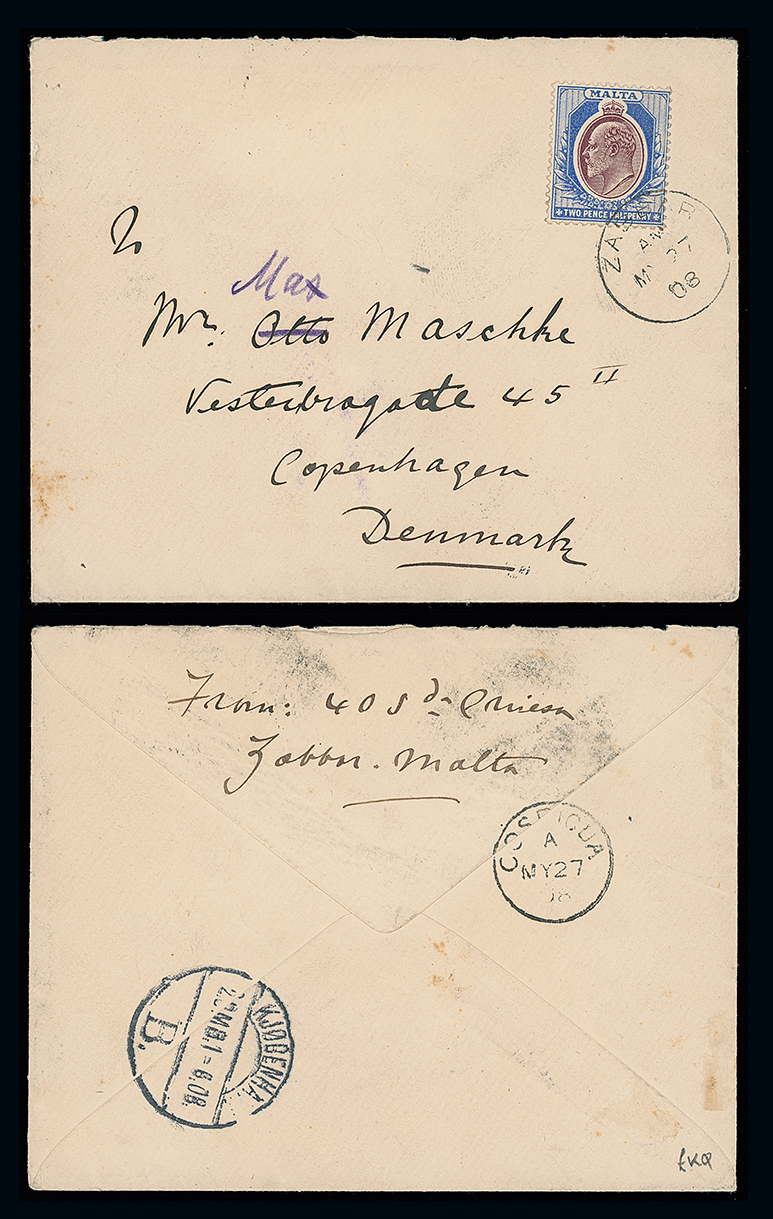 MALTA
TWO PENCE HALFPENNY
ZABBAR
AM
MY 27
08
To
Max
Mr. Otto Maschke
Vesterbrogade 45 II
Copenhagen
Denmark
From: 40 Sda
Zabbar. Malta
COSPICUA
A
MY 27
KJØBENHA
2.OMB.1=6.08
B.